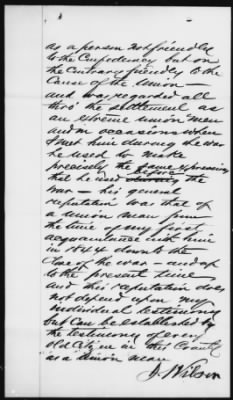 as a person not friendly
to the Confederacy but on
the contrary friendly to the
Cause of the Union —
and was regarded all
thro' the settlement as
an extreme Union man
and on occasions when
I met him during the war
he used to make
precisely the same expressions
that he used before the
war — his general
reputation was that of
a Union man from
the time of my first
acquaintance with him
in 1844 down to the
Close of the war — and up
to the present time —
and this reputation does
not depend upon my
individual testimony
but can be established by
the testimony of every
old Citizen in this County
as a Union man
J. Wilson